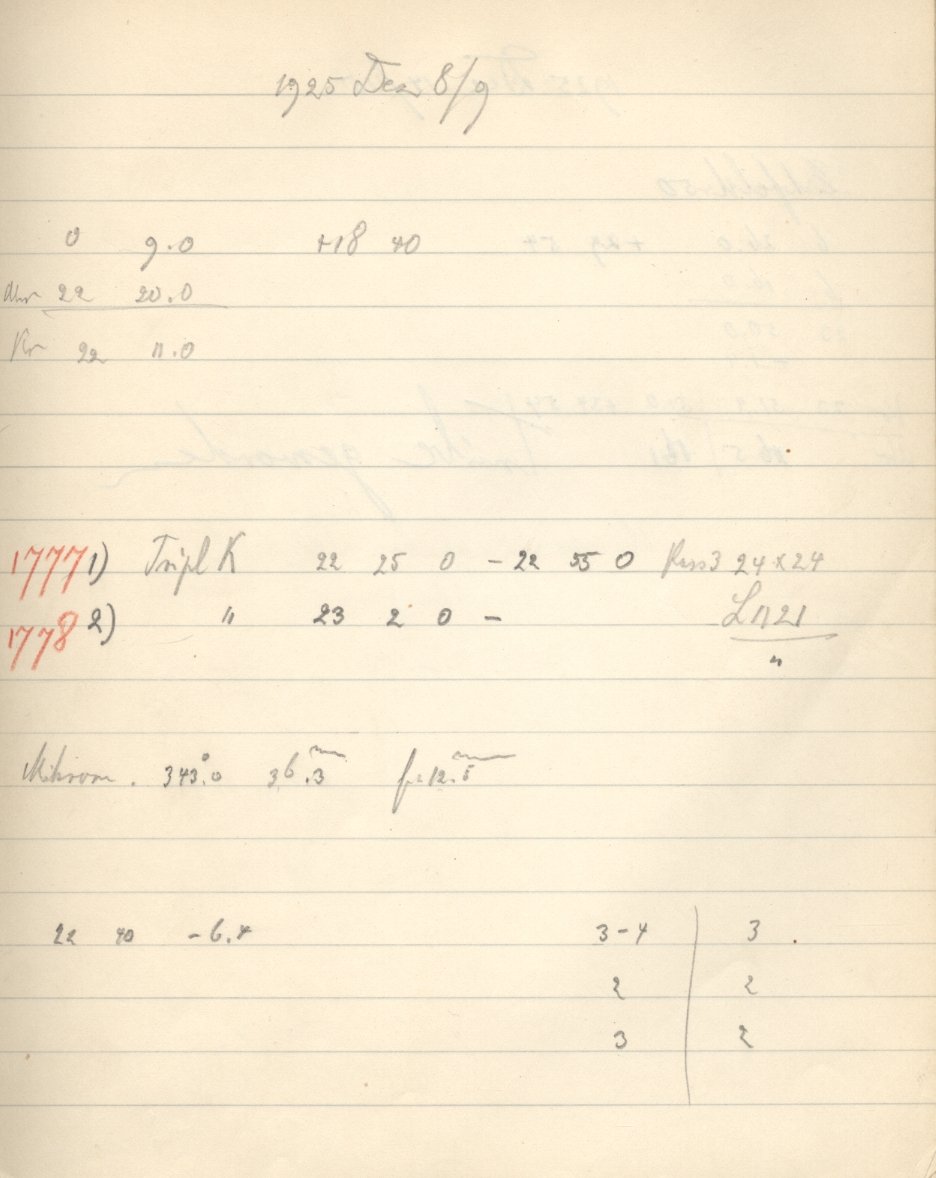 1925 Dez 8/9
0 9.0 +18 40
Uhr 22 20.0
Kr 22 11.0
1777 1) Tripl K 22 25 0 – 22 55 0 24×24
1778 2) " 23 2 0 – L 1121
"
Mikrom. 343°.0 36.3mm f=12.5mm
22 40 -6.4 3-4 3
2 2
3 2